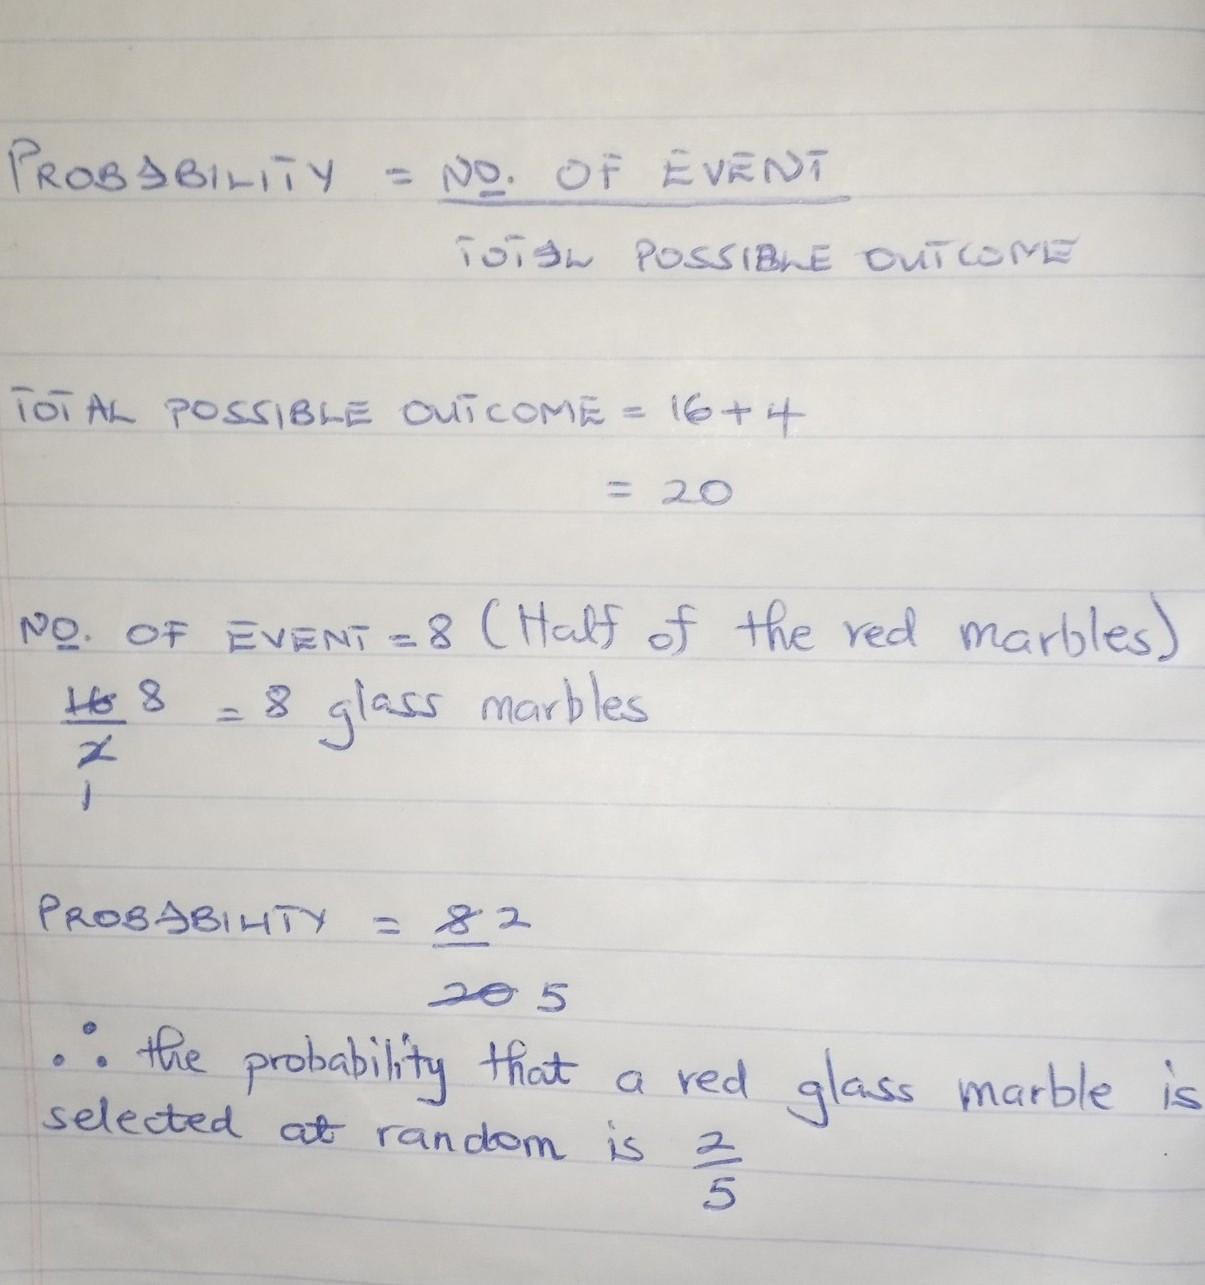 PROBABILITY = NO. OF EVENT
TOTAL POSSIBLE OUTCOME
TOTAL POSSIBLE OUTCOME = 16 + 4
= 20
NO. OF EVENT = 8 (Half of the red marbles)
16 8 = 8 glass marbles
2
1
PROBABILITY = 8 2
20 5
∴ the probability that a red glass marble is
selected at random is 2
5